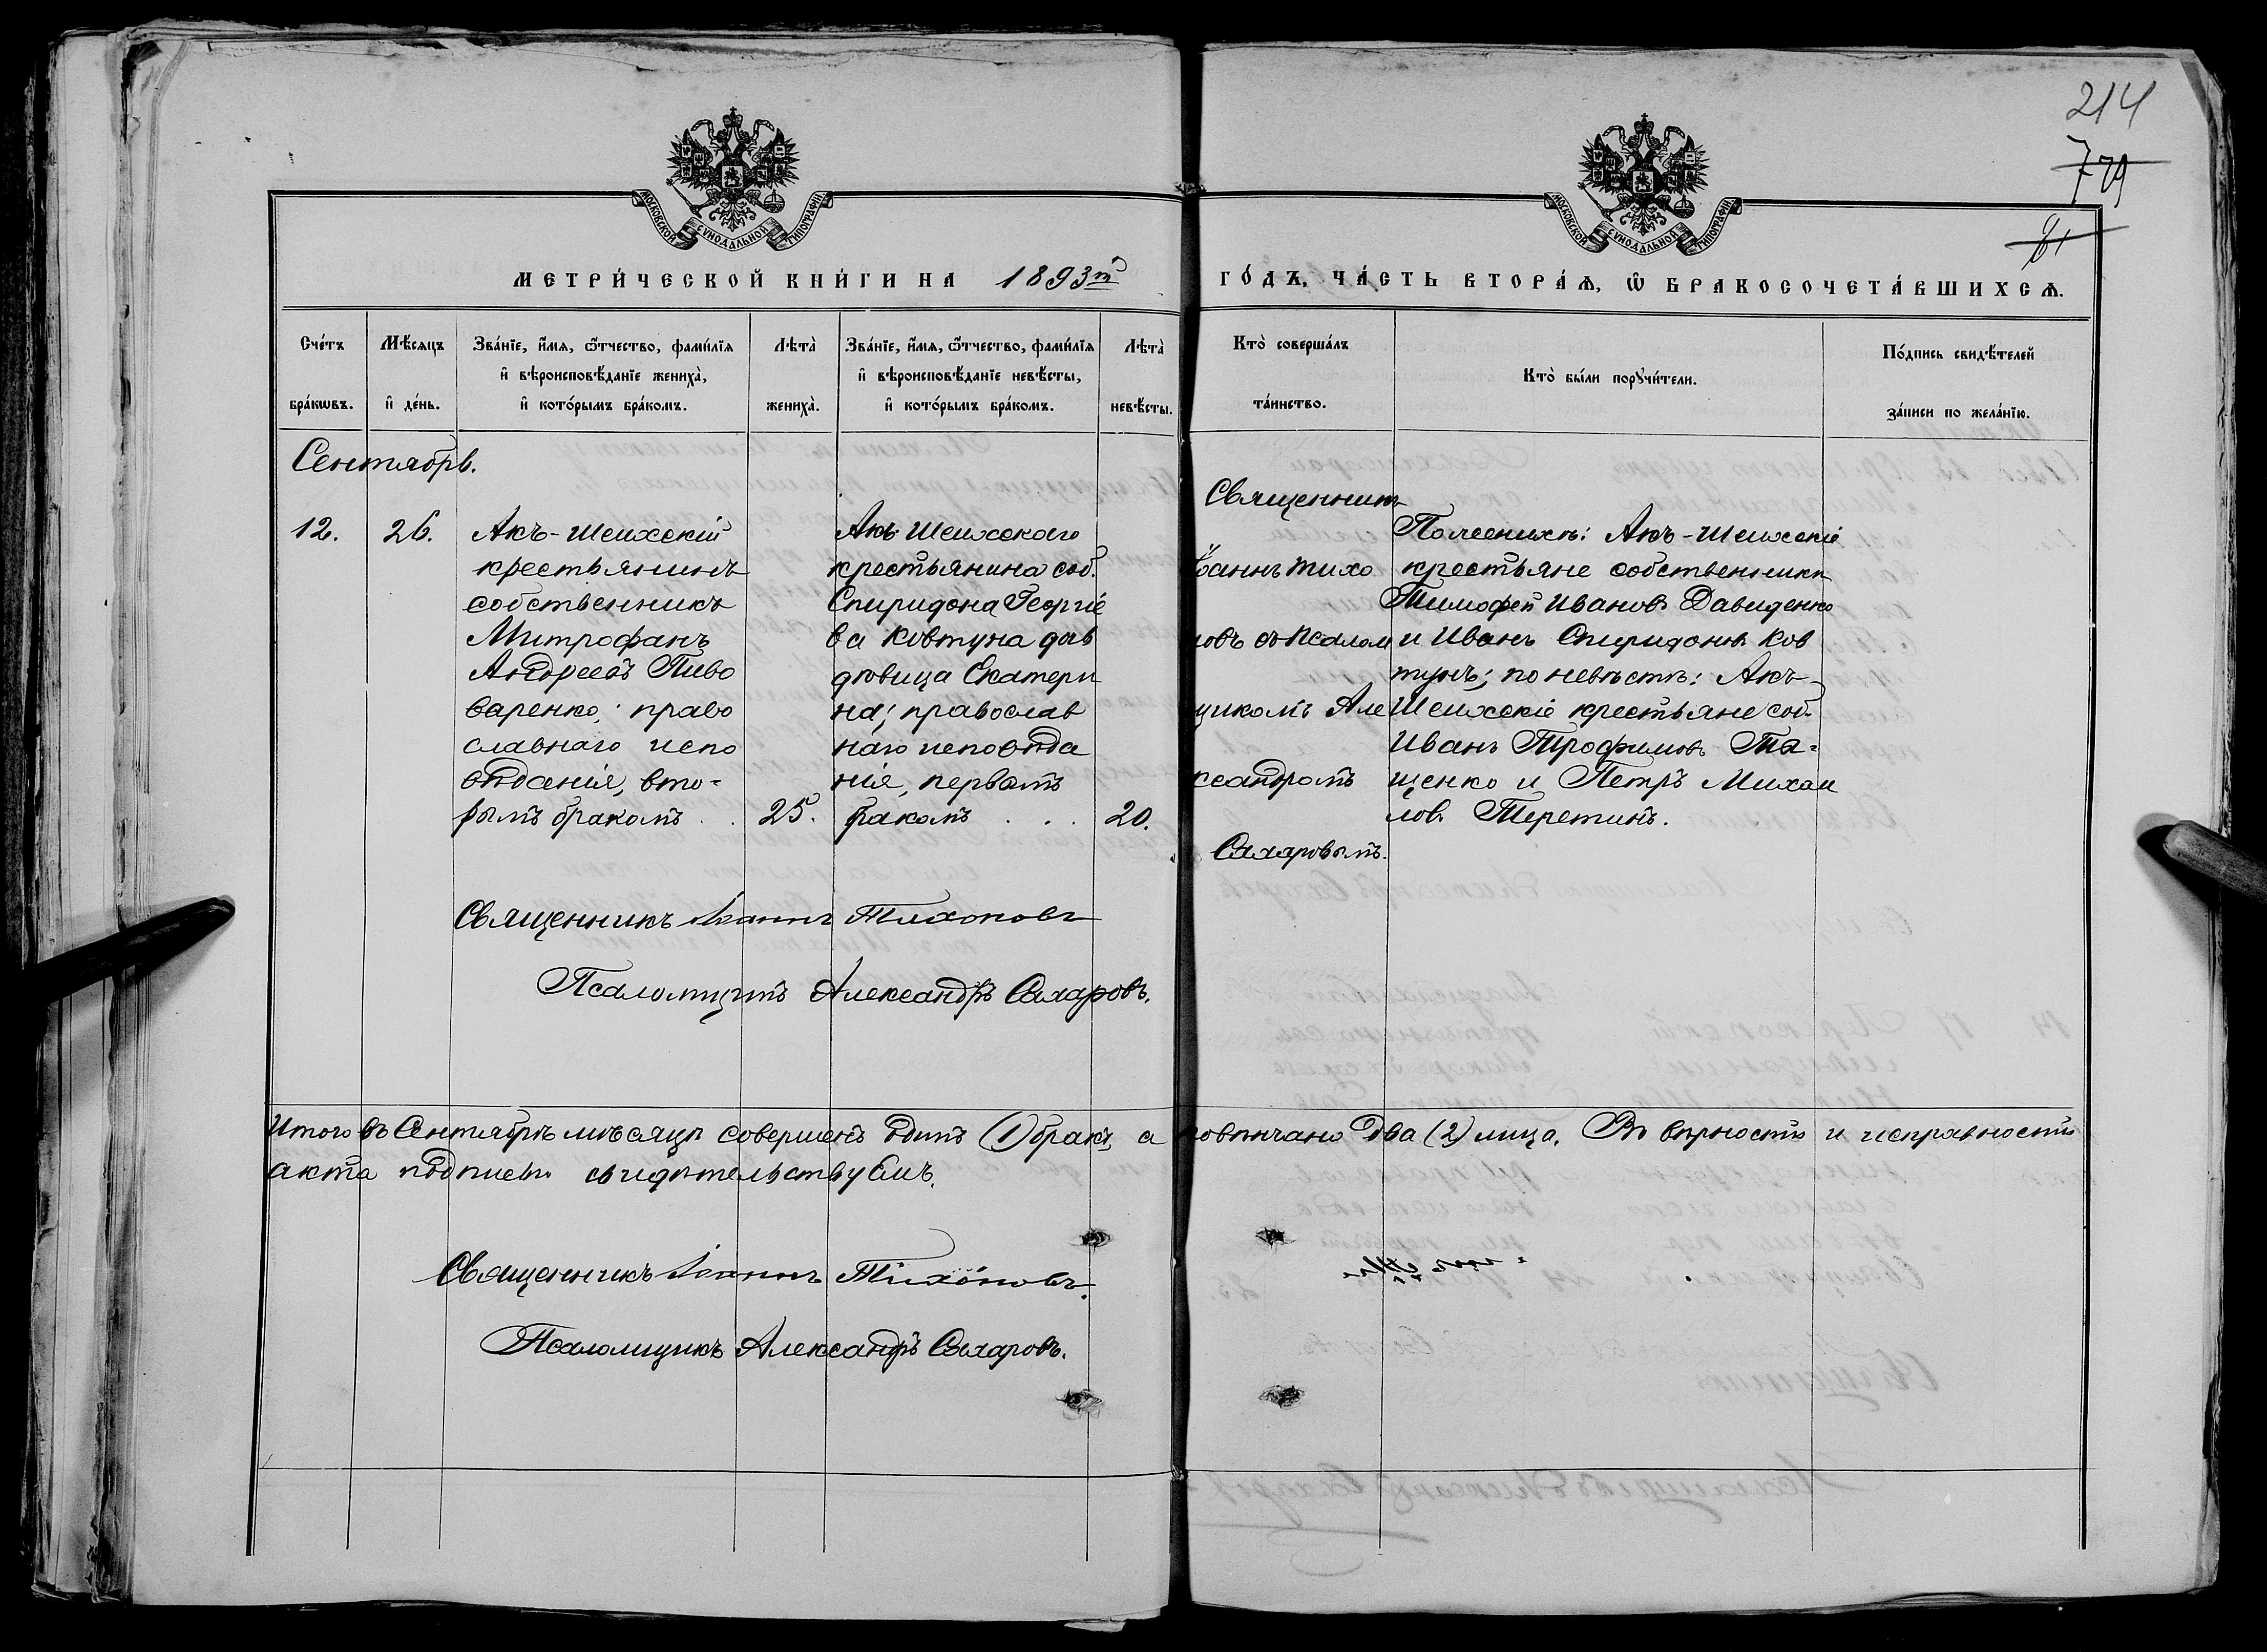 214
729
81
МОСКОВСКОЙ СѴНОДАЛЬНОЙ ТИПОГРАФІИ
МОСКОВСКОЙ СѴНОДАЛЬНОЙ ТИПОГРАФІИ
МЕТРИ́ЧЕСКОЙ КНИ́ГИ НА 1893й
ГО́ДЪ, ЧА́СТЬ ВТОРА́Ѧ, Ѡ҆ БРАКОСОЧЕТА́ВШИХСѦ.
Сче́тъ
бра́кѡвъ.
Мѣ́сяцъ
и҆ де́нь.
Зва́нїе, и҆́мѧ, ѻ҆́тчество, фами́лїѧ
и҆ вѣроисповѣ́данїе жениха̀,
и҆ кото́рымъ бра́комъ.
Лѣта̀
жениха̀.
Зва́нїе, и҆́мѧ, ѻ҆́тчество, фами́лїѧ
и҆ вѣроисповѣ́данїе невѣ́сты,
и҆ кото́рымъ бра́комъ.
Лѣта̀
невѣ́сты.
Кто̀ соверша́лъ
та́инство.
Кто̀ бы́ли порꙋчи́тели.
По́дпись свидѣ́телей
за́писи по жела́нїю.
Сентябрь.
12.
26.
Акъ-Шеихскій
крестьянинъ
собственникъ
Митрофанъ
Андреевъ Пиво
варенко; право
славнаго испо
вѣданія, вто-
рымъ бракомъ . .
25.
Акъ Шеихскаго
крестьянина соб.
Спиридона Георгіе
ва Ковтуна дочь
дѣвица Екатери
на; православ
наго исповѣда
нія, первымъ
бракомъ . . .
20.
Священникъ
Іоаннъ Тихо
новъ съ псалом
щикомъ Але
ксандромъ
Сахаровымъ.
По женихѣ: Акъ-Шеихскіе
крестьяне собственники
Тимофей Ивановъ Давиденко
и Иванъ Спиридоновъ Ков
тунъ; по невѣстѣ: Акъ-
Шеихскіе крестьяне соб.
Иванъ Трофимовъ Та-
щенко и Петръ Михаи
ловъ Теретинъ.
Священникъ Іоаннъ Тихоновъ
Псаломщикъ Александръ Сахаровъ.
Итого въ Сентябрѣ мѣсяцѣ совершенъ одинъ (1) бракъ, а повѣнчано два (2) лица. Въ вѣрности и исправности
акта подписью свидѣтельствуемъ.
Священникъ Іоаннъ Тихоновъ.
Псаломщикъ Александръ Сахаровъ.